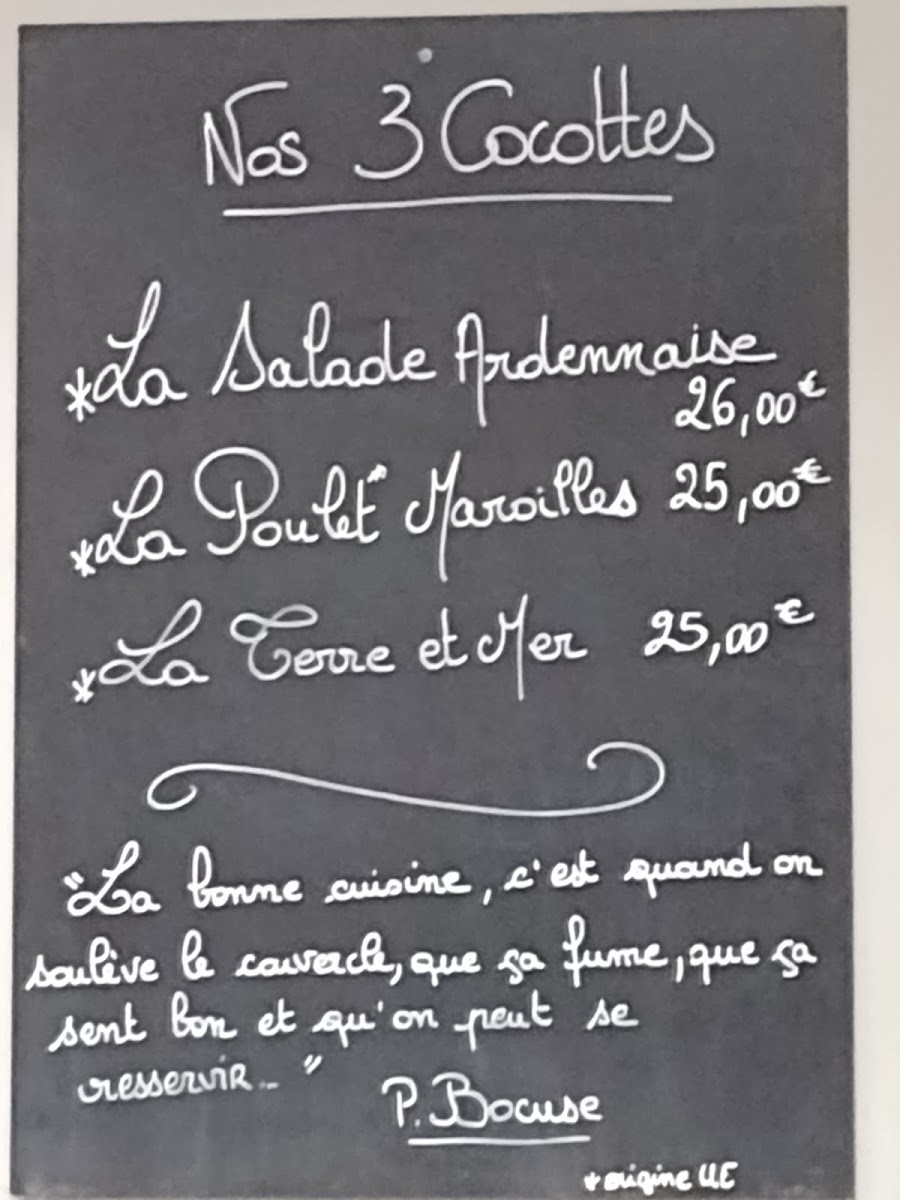 Nos 3 Cocottes
*La Salade Ardennaise
26,00€
*La Poulet* Maroilles 25,00€
*La Terre et Mer 25,00€
"La bonne cuisine, c'est quand on
soulève le couvercle, que ça fume, que ça
sent bon et qu'on peut se
resservir... "
P. Bocuse
* origine UE